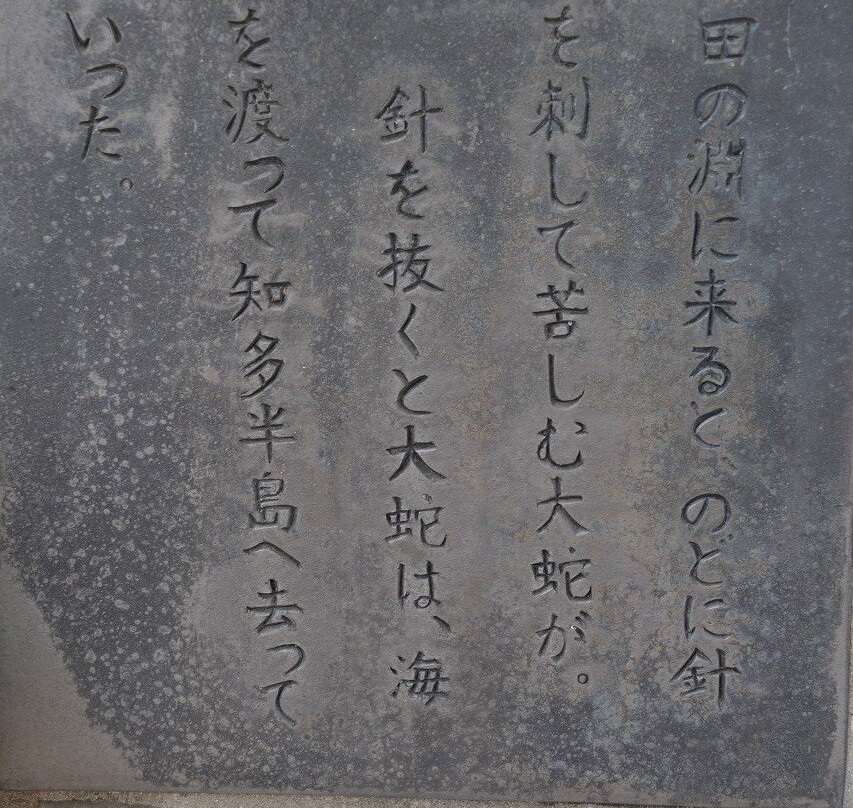 田の淵に来ると、のどに針
を刺して苦しむ大蛇が。
針を抜くと大蛇は、海
を渡って知多半島へ去って
いった。